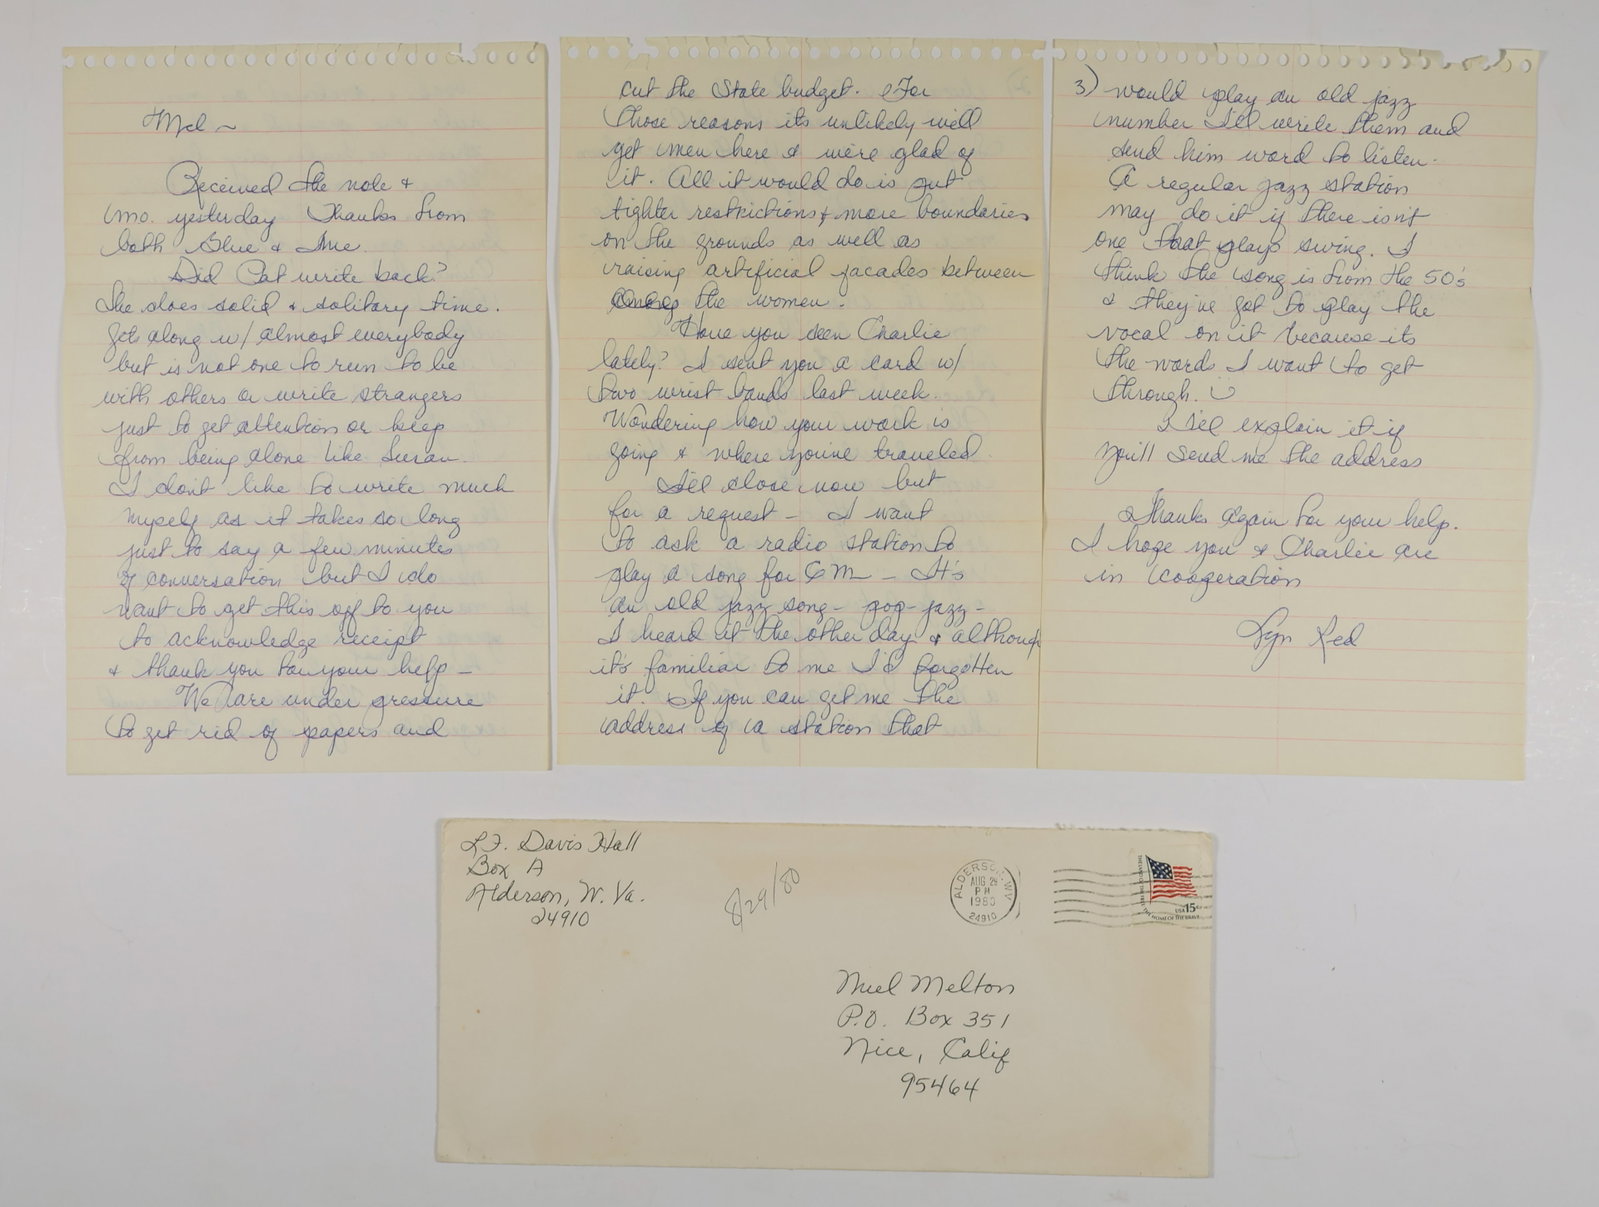 Mel ~
Received the note +
mo. yesterday Thanks from
both Blue & me.
Did Pat write back?
She does solid & solitary time.
Gets along w/ almost everybody
but is not one to run to be
with others or write strangers
just to get attention or keep
from being alone like Susan.
I don't like to write much
myself as it takes so long
just to say a few minutes
of conversation but I do
want to get this off to you
to acknowledge receipt
& thank you for your help –
We are under pressure
to get rid of papers and
cut the State budget. For
those reasons its unlikely we'll
get men here & we're glad of
it. All it would do is put
tighter restrictions & more boundaries
on the grounds as well as
raising artificial facades between
the women.
Have you seen Charlie
lately? I sent you a card w/
two wrist bands last week.
Wondering how your work is
going & where you've traveled.
I'll close now but
for a request – I want
to ask a radio station to
play a song for CM – It's
an old jazz song – pop-jazz –
I heard it the other day & although
it's familiar to me I'd forgotten
it. If you can get me the
address of a station that
3) would play an old jazz
number I'll write them and
send him word to listen.
A regular jazz station
may do it if there isn't
one that plays swing. I
think the song is from the 50's
& they've got to play the
vocal on it because its
the words I want to get
through.
I'll explain it if
you'll send me the address
Thanks again for your help.
I hope you & Charlie are
in cooperation
Lyn Red
L.F. Davis Hall
Box A
Alderson, W. Va.
24910
8/29/80
ALDERSON, WV
AUG 29
PM
1980
24910
USA 15c
THE LAND OF THE FREE THE HOME OF THE BRAVE
Mel Melton
P.O. Box 351
Nice, Calif
95464